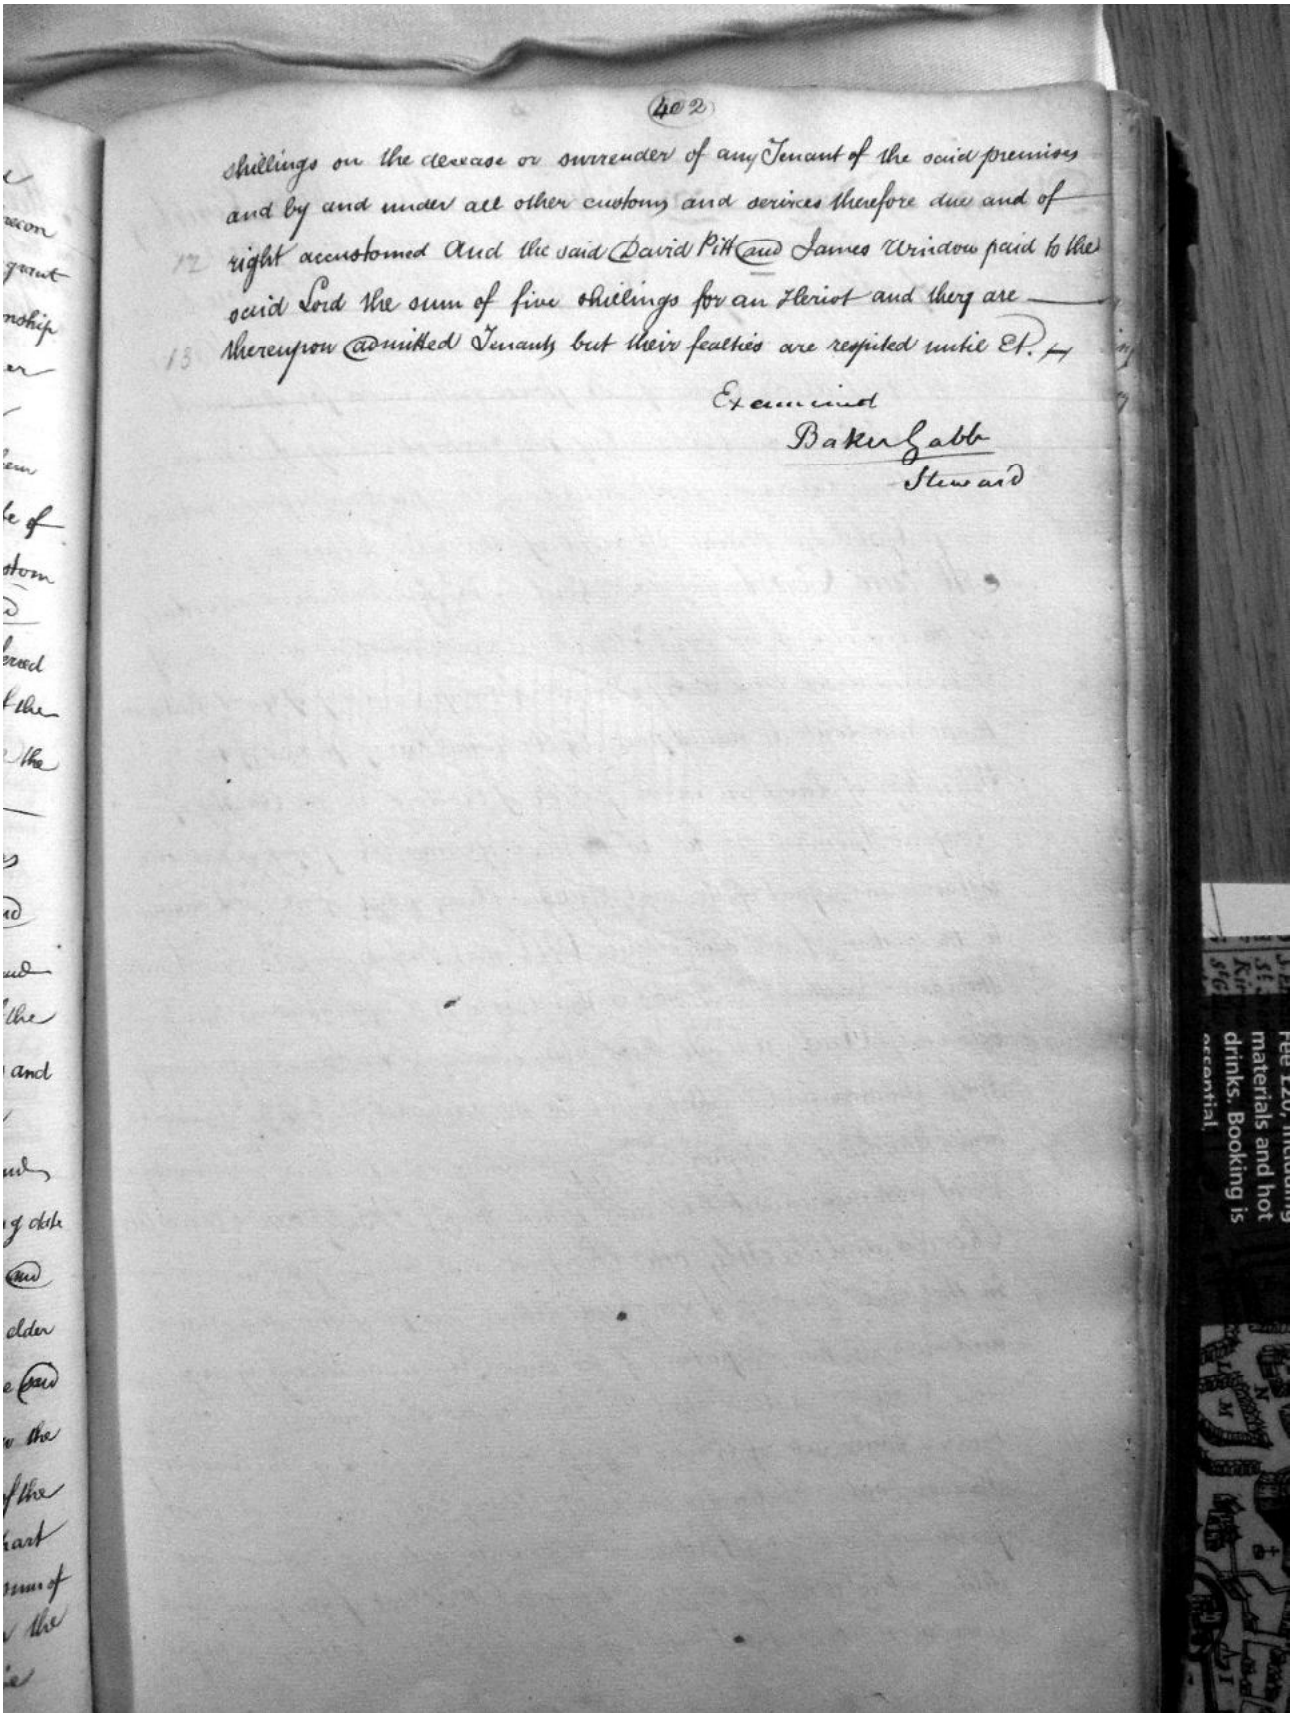 402
shillings on the decease or surrender of any Tenant of the said premises
and by and under all other customs and services therefore due and of
12 right accustomed And the said David Pitt and James Window paid to the
said Lord the sum of five shillings for an Heriot and they are
13 thereupon admitted Tenants but their fealties are respited until &c.
Examined
Baker Gabb
Steward
grant
er
le of
stom
the
the
s
the
and
elder
said
the
of the
sum of
the
materials and hot
drinks. Booking is
essential.